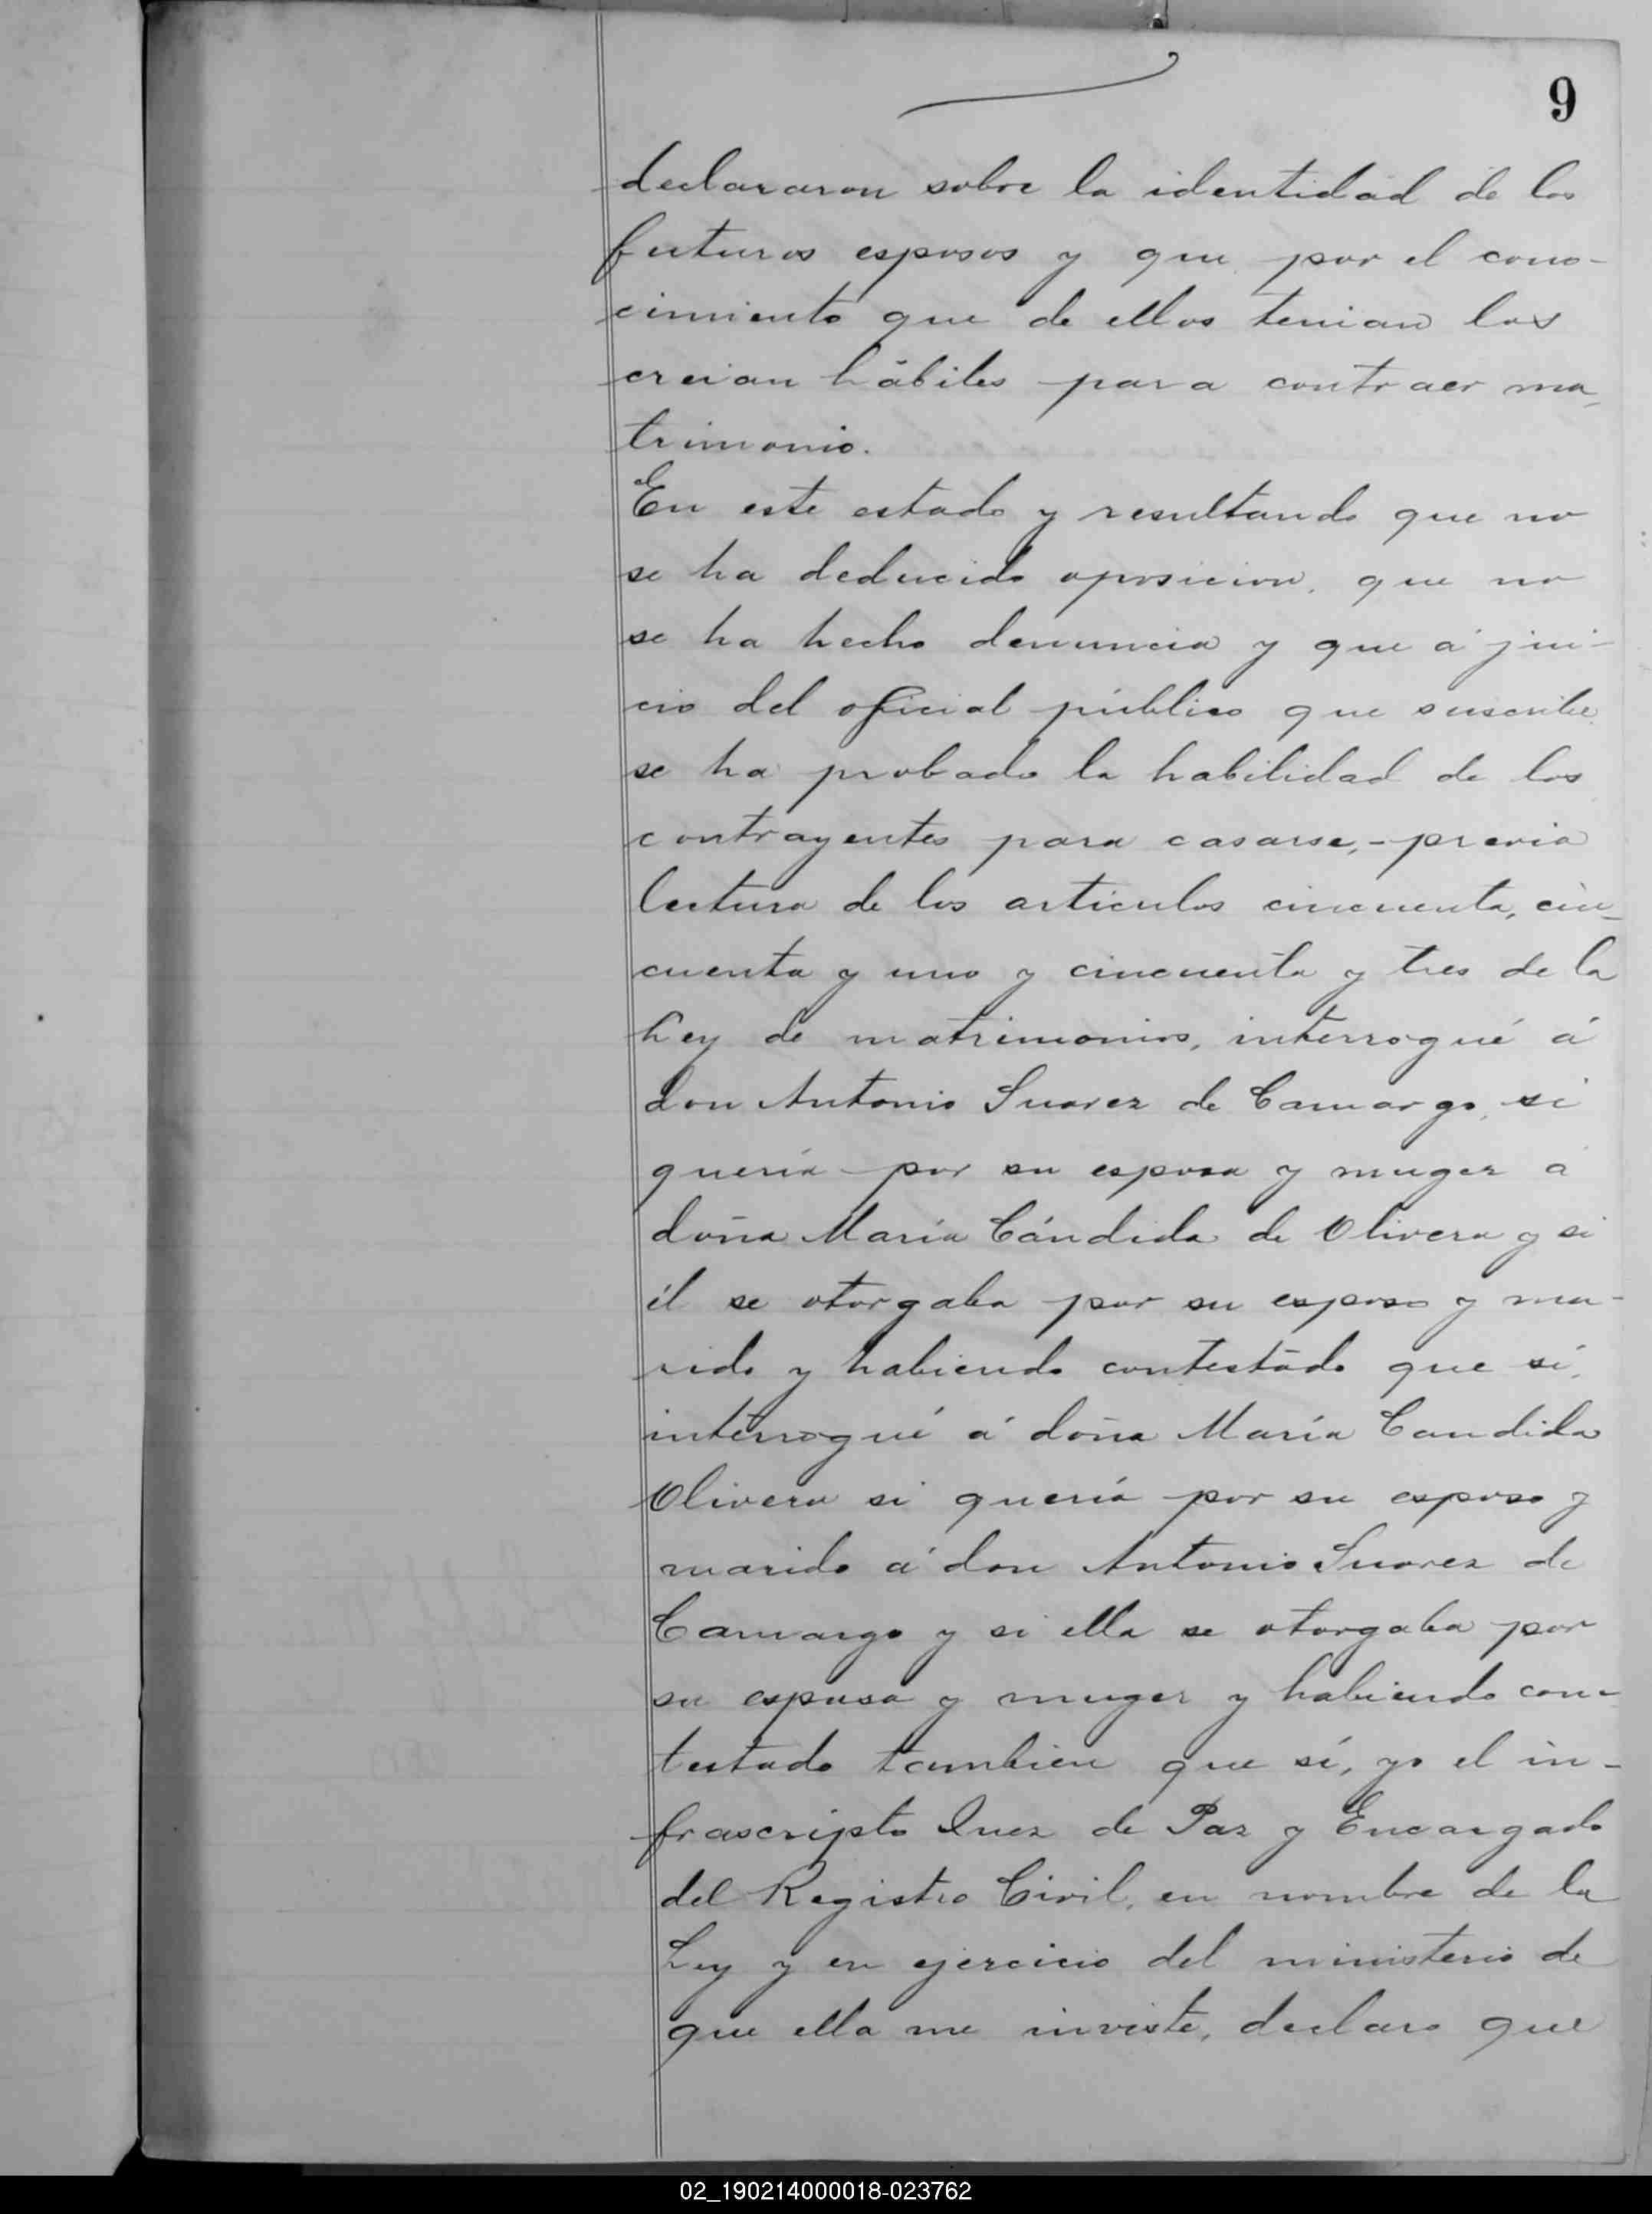 9
declararon sobre la identidad de los
futuros esposos y que por el cono-
cimiento que de ellos tenian los
creian hábiles para contraer ma-
trimonio.
En este estado y resultando que no
se ha deducido oposicion, que no
se ha hecho denuncia y que á jui-
cio del oficial público que suscribe
se ha probado la habilidad de los
contrayentes para casarse,- previa
lectura de los articulos cincuenta, cin-
cuenta y uno y cincuenta y tres de la
Ley de matrimonios, interrogué á
don Antonio Suarez de Camargo, si
quería por su esposa y muger á
doña María Cándida de Olivera y si
él se otorgaba por su esposo y ma-
rido y habiendo contestado que sí,
interrogué á doña María Candida
Olivera si quería por su esposo y
marido á don Antonio Suarez de
Camargo y si ella se otorgaba por
su esposa y muger y habiendo con-
testado tambien que sí, yo el in-
frascripto Juez de Paz y Encargado
del Registro Civil, en nombre de la
Ley y en ejercicio del ministerio de
que ella me inviste, declaro que
02_190214000018-023762